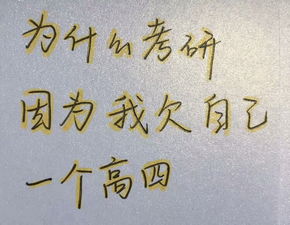 为什么考研
因为我欠自己
一个高四